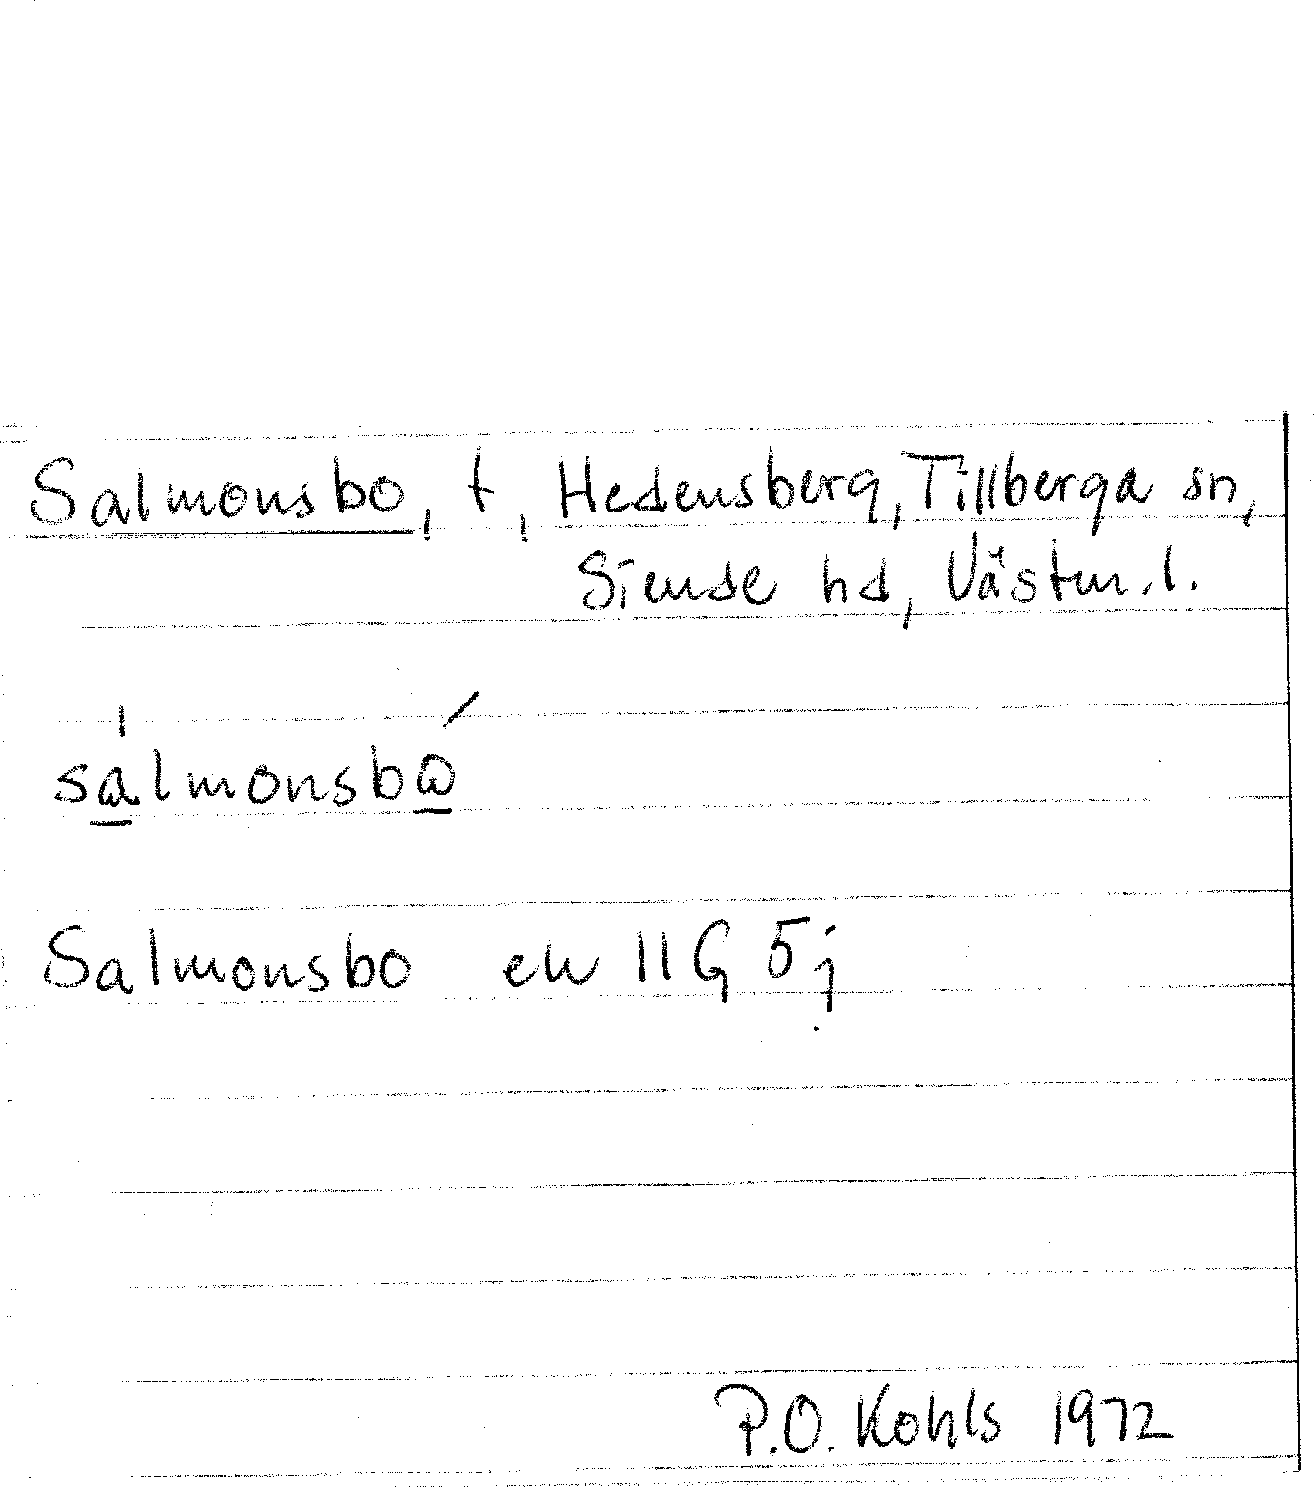 Salmonsbo, t, Hedensberg, Tillberga sn,
Siende hd, Västm. l.
salmonsbω
Salmonsbo ek 11G 5j
P.O. Kohls 1972